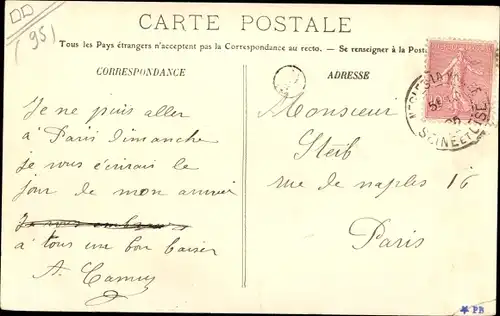 (95)
CARTE POSTALE
Tous les Pays étrangers n'acceptent pas la Correspondance au recto. — Se renseigner à la Poste
CORRESPONDANCE
ADRESSE
Je ne puis aller
à Paris dimanche
je vous écrirais le
jour de mon arriver
Je vous embrasse
à tous un bon baiser
A. Camus
Monsieur
Steib
rue de naples 16
Paris
SEINE ET OISE
PB